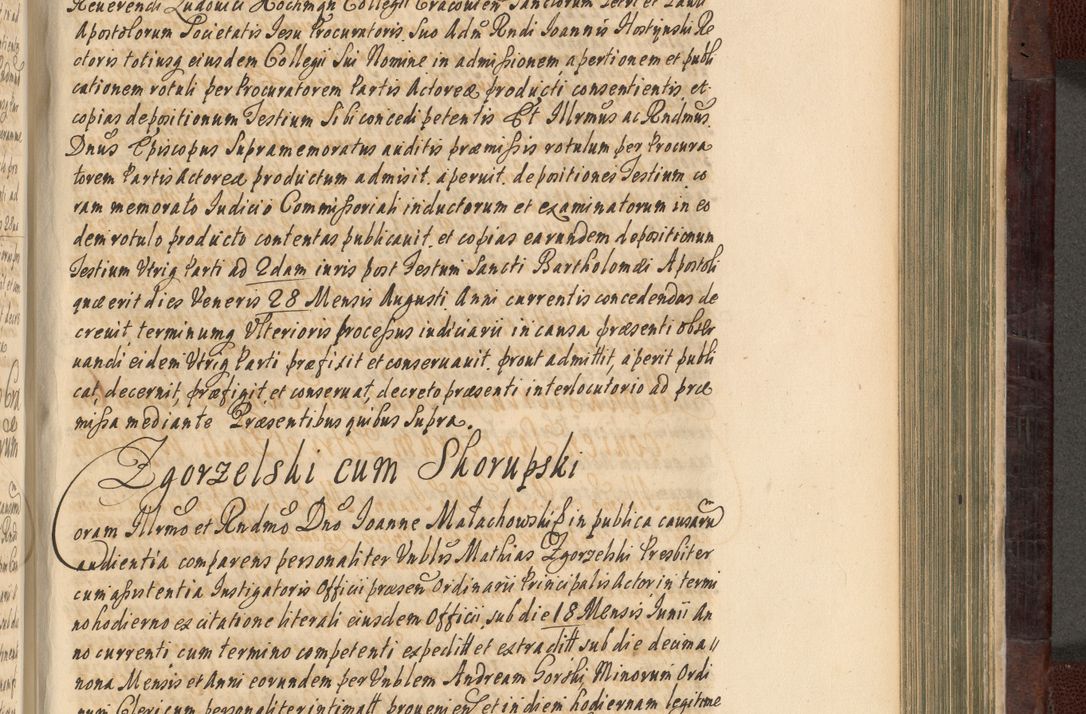 Reverendi Ludovici Hochmyn Collegii Cracovien Sanctorum Petri et Pauli
Apostolorum Societatis Iesu Procuratoris. Suo Adm Rndi Ioannis Hostynski Re
ctoris totiusq eiusdem Collegii Sui Nomine in admissionem, apertionem et publi
cationem rotuli per Procuratorem Partis Actoreæ producti consentientis et
copias depositionum Testium Sibi concedi petentis Et Illrmus ac Rndmus
Dnus Episcopus Supramemoratus auditis præmissis rotulum per Procura
torem Partis Actoreæ productum admisit. aperuit. depositiones Testium co
ram memorato Iudicio Commissoriali inductorum et examinatorum in eo
dem rotulo producto contentas publicauit. et copias earundem depositionum
Testium Utriq Parti ad 2dam iuris post Festum Sancti Bartholomæi Apostoli
quæ erit dies Veneris 28 Mensis Augusti Anni currentis concedendas de
creuit. terminumq Ulterioris processus iudiciarii in causa præsenti obser
uandi eidem Utriq Parti præfixit et conseruauit. prout admittit, aperit publi
cat, decernit, præfigit et conseruat, decreto præsenti interlocutorio ad præ
missa mediante Præsentibus quibus Supra.
Zgorzelski cum Skorupski
Coram Illrmo et Rndmo Dno Ioanne Małachowski in publica causarū
audientia comparens personaliter Vnblis Mathias Zgorzelski Presbiter
cum assistentia Instigatoris Officii præsen Ordinarii Principalis Actor in termi
no hodierno ex citatione literali eiusdem Officii, sub die 18 Mensis Iunii An
no currenti cum termino competenti expeditt et extraditt sub die decima
nona Mensis et Anni eorundem per Vnblem Andream Gorski Minorum Ordi
num Clericum personaliter intimatt provenien et in diem hodiernam legitime